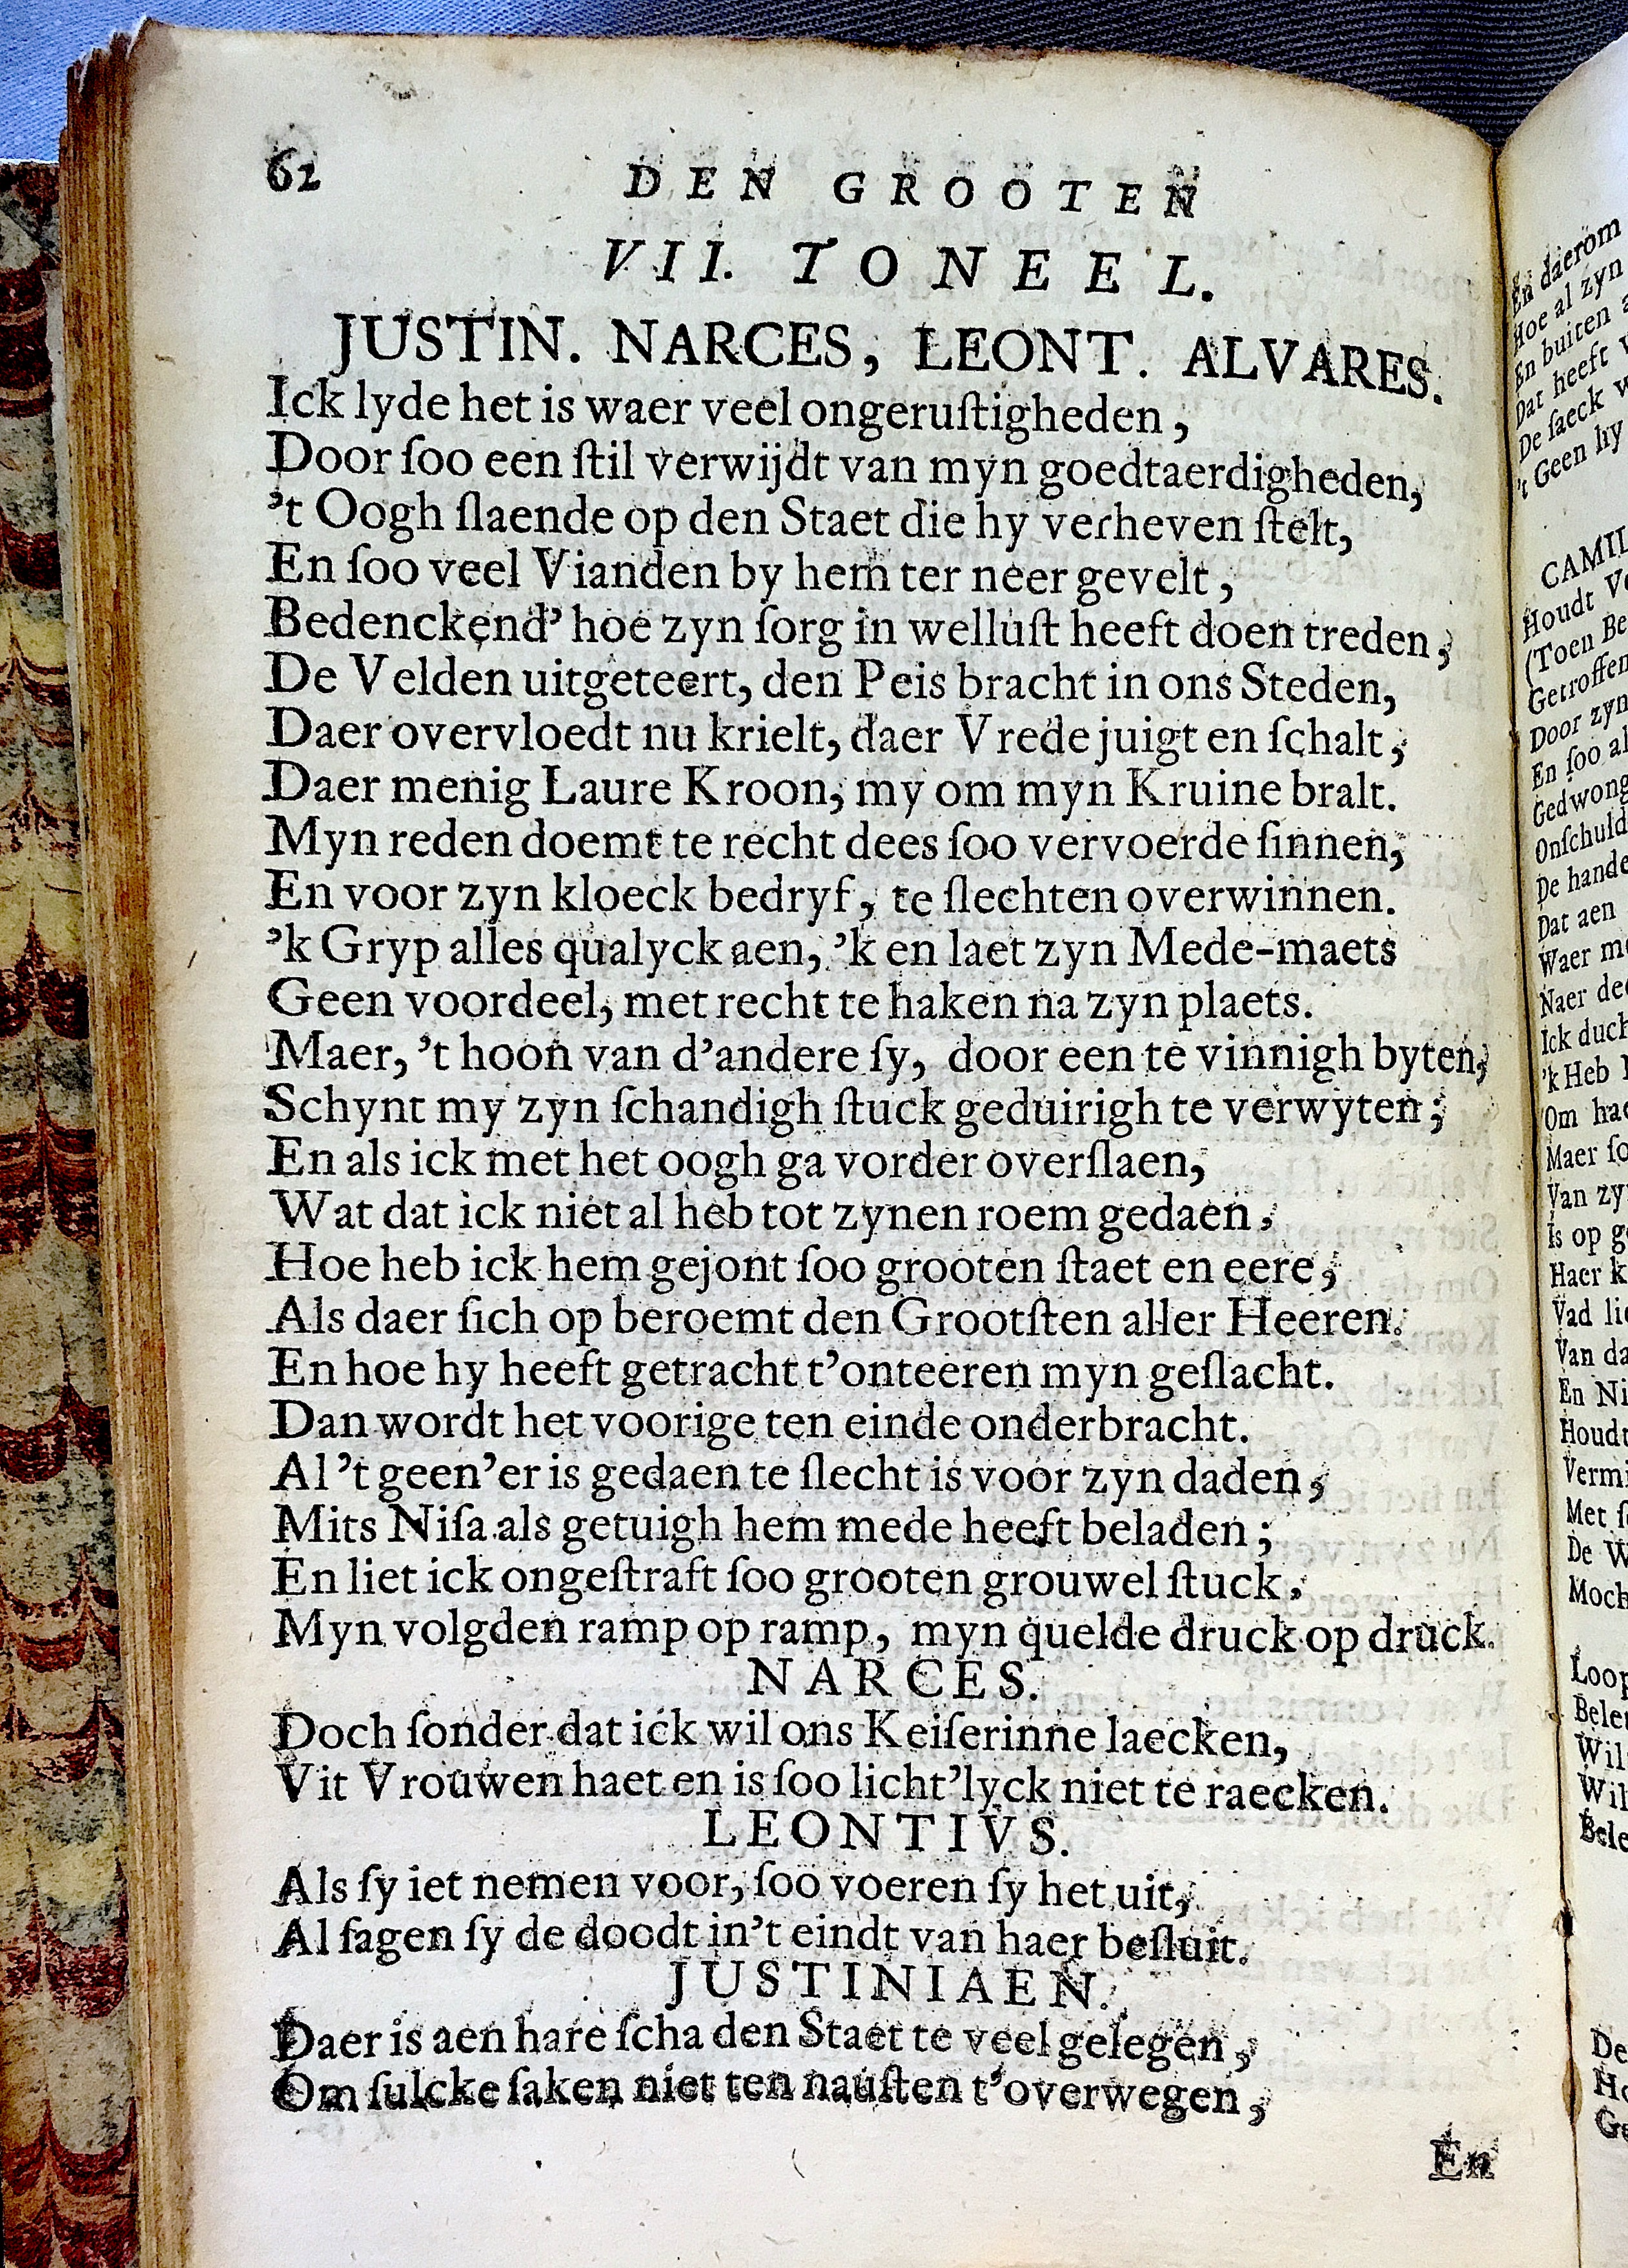 62
DEN GROOTEN
VII. TONEEL.
JUSTIN. NARCES, LEONT. ALVARES.
Ick lyde het is waer veel ongeruſtigheden,
Door ſoo een ſtil verwijdt van myn goedtaerdigheden,
’t Oogh ſlaende op den Staet die hy verheven ſtelt,
En ſoo veel Vianden by hem ter neer gevelt,
Bedenckend’ hoe zyn ſorg in welluſt heeft doen treden,
De Velden uitgeteert, den Peis bracht in ons Steden,
Daer overvloedt nu krielt, daer Vrede juigt en ſchalt,
Daer menig Laure Kroon, my om myn Kruine bralt.
Myn reden doemt te recht dees ſoo vervoerde ſinnen,
En voor zyn kloeck bedryf, te ſlechten overwinnen.
’k Gryp alles qualyck aen, ’k en laet zyn Mede-maets
Geen voordeel, met recht te haken na zyn plaets.
Maer, ’t hoon van d’andere ſy, door een te vinnigh byten,
Schynt my zyn ſchandigh ſtuck geduirigh te verwyten;
En als ick met het oogh ga vorder overſlaen,
Wat dat ick niet al heb tot zynen roem gedaen,
Hoe heb ick hem gejont ſoo grooten ſtaet en eere,
Als daer ſich op beroemt den Grootſten aller Heeren.
En hoe hy heeft getracht t’onteeren myn geſlacht.
Dan wordt het voorige ten einde onderbracht.
Al ’t geen’er is gedaen te ſlecht is voor zyn daden,
Mits Niſa als getuigh hem mede heeft beladen;
En liet ick ongeſtraft ſoo grooten grouwel ſtuck,
Myn volgden ramp op ramp, myn quelde druck op druck.
NARCES.
Doch ſonder dat ick wil ons Keiſerinne laecken,
Vit Vrouwen haet en is ſoo licht’lyck niet te raecken.
LEONTIVS.
Als ſy iet nemen voor, ſoo voeren ſy het uit,
Al ſagen ſy de doodt in’t eindt van haer beſluit.
JUSTINIAEN.
Daer is aen hare ſcha den Staet te veel gelegen,
Om ſulcke ſaken niet ten nauſten t’overwegen,
En
En daerom
Hoe al zyn
En buiten
Dat heeft
De ſaeck
’t Geen hy
CAMIL
Houdt
(Toen Be
Getroffen
Door zyn
En ſoo al
Gedwong
Onſchuld
De hande
Dat aen
Waer
Naer
Ick
’k Heb
Om
Maer
Van
Is op
Haer
Vad
Van
En
Met
De
Loop
De